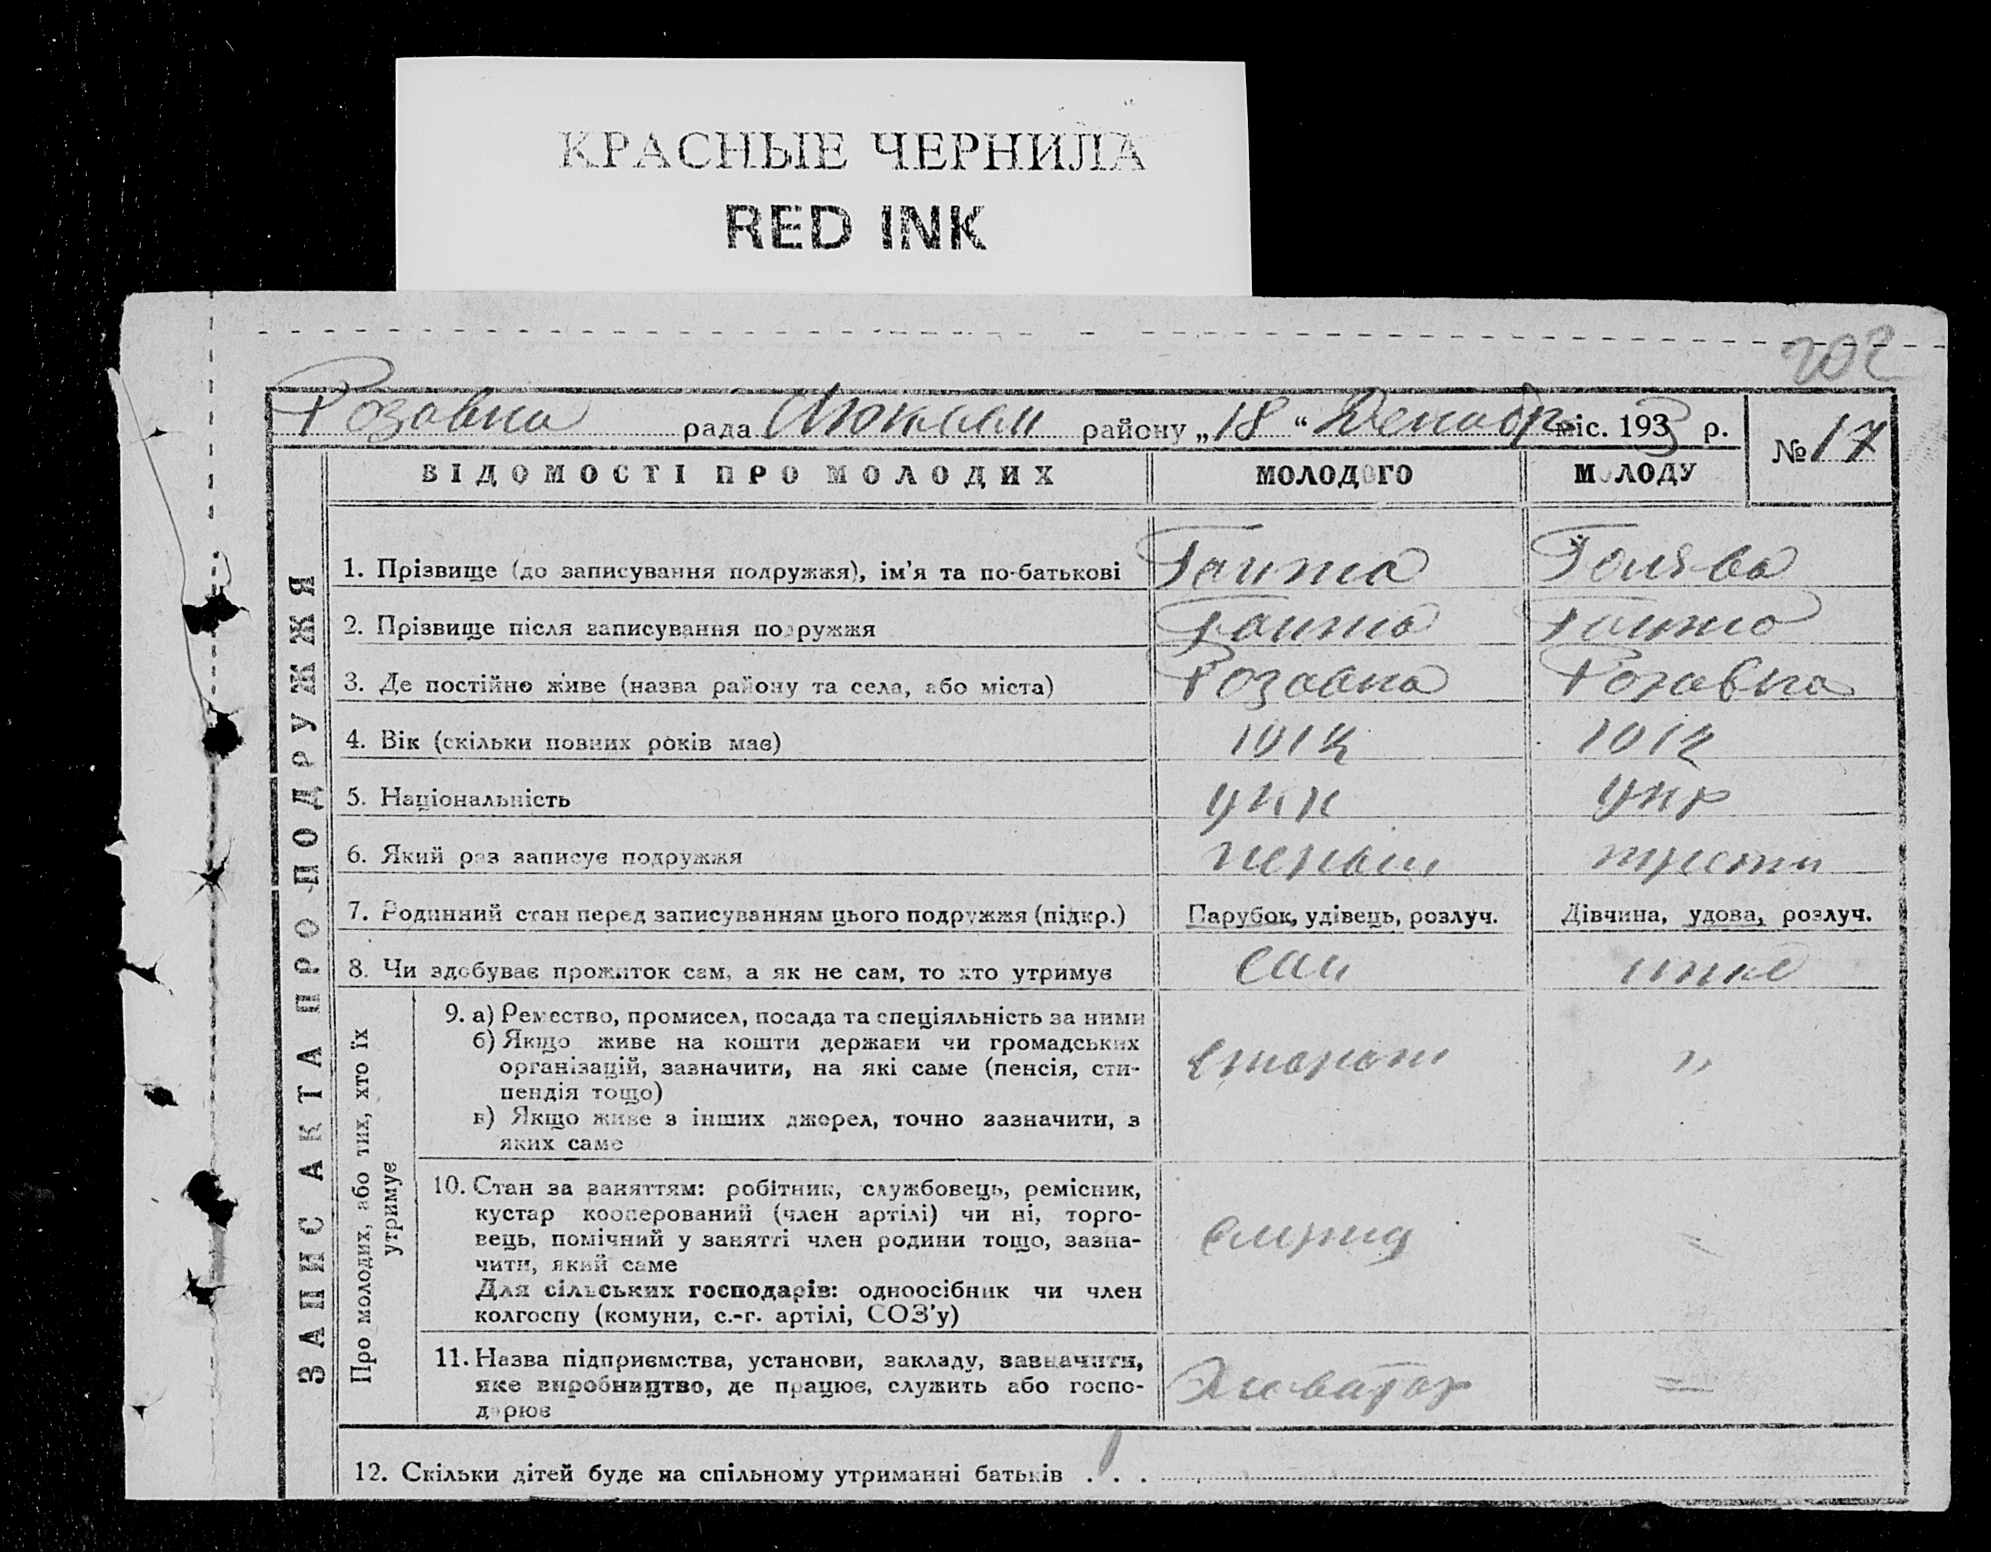 КРАСНЫЕ ЧЕРНИЛА
RED INK
202
Розовка рада району „18“ Декабр міс. 1933 р.
№ 17
ВІДОМОСТІ ПРО МОЛОДИХ МОЛОДОГО МОЛОДУ
ЗАПИС АКТА ПРО ПОДРУЖЖЯ
1. Прізвище (до записування подружжя), ім’я та по-батькові
2. Прізвище після записування подружжя
3. Де постійно живе (назва району та села, або міста) Розовка Розовка
4. Вік (скільки повних років має)
5. Національність укр укр
6. Який раз записує подружжя первый
7. Родинний стан перед записуванням цього подружжя (підкр.) Парубок, удівець, розлуч. Дівчина, удова, розлуч.
8. Чи здобуває прожиток сам, а як не сам, то хто утримує сам
Про молодих, або тих, хто їх утримує
9. а) Ремество, промисел, посада та спеціяльність за ними
б) Якщо живе на кошти держави чи громадських
організацій, зазначити, на які саме (пенсія, сти-
пендія тощо)
в) Якщо живе з інших джерел, точно зазначити, з
яких саме
"
10. Стан за заняттям: робітник, службовець, ремісник,
кустар кооперований (член артілі) чи ні, торго-
вець, помічний у занятті член родини тощо, зазна-
чити, який саме
Для сільських господарів: одноосібник чи член
колгоспу (комуни, с.-г. артілі, СОЗ’у)
=
11. Назва підприємства, установи, закладу, зазначити,
яке виробництво, де працює, служить або госпо-
дарює
=
12. Скільки дітей буде на спільному утриманні батьків . . .